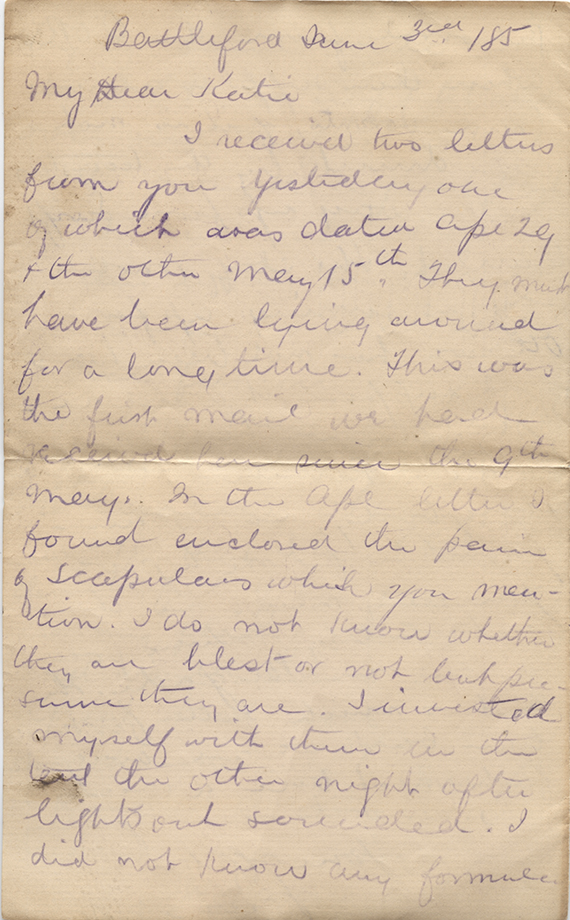 Battleford June 3rd /85
My Dear Katie
I received two letters
from you yesterday one
of which was dated Apl 29
+ the other May 15th. They must
have been lying around
for a long time. This was
the first mail we had
received here since the 9th
May. In the Apl letter I
found enclosed the pair
of Scapulars which you men-
tion. I do not know whether
they are blest or not but pre-
sume they are. I invested
myself with them in the
tent the other night after
lights out sounded. I
did not know any formula